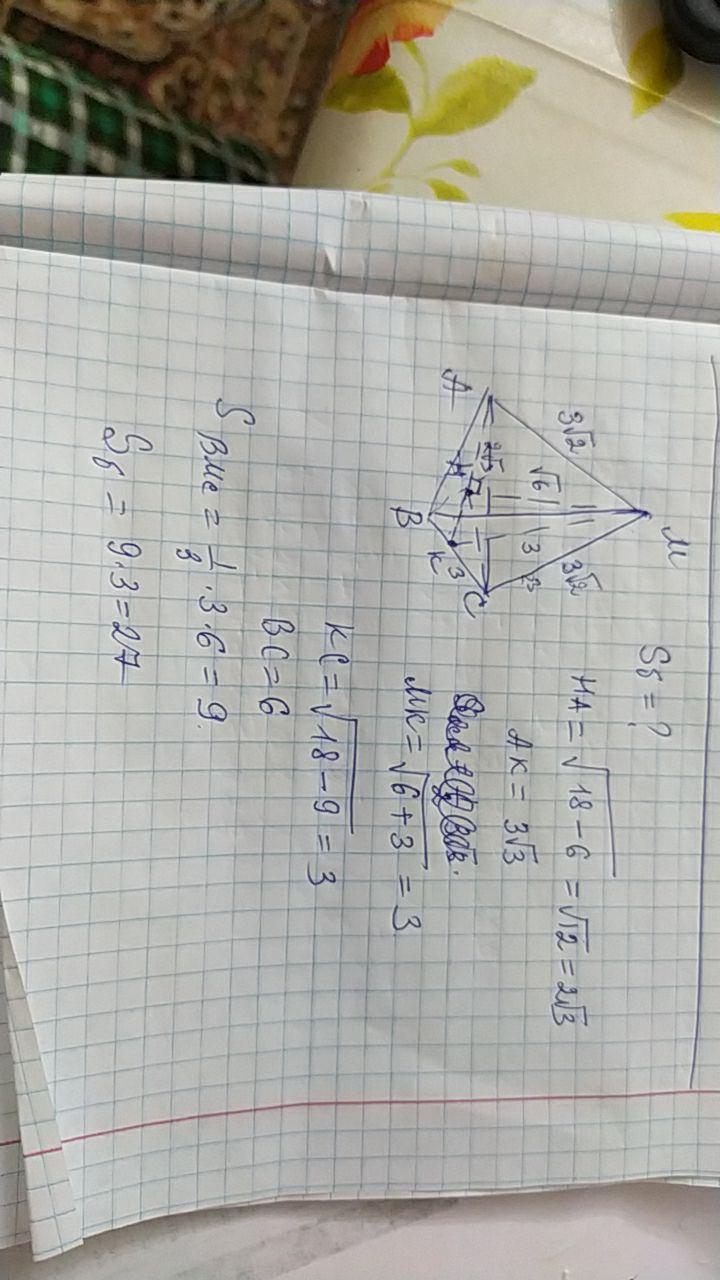 M
3√2
√6
3
3√2
A
2√3
H
B
K
3
C
Sб = ?
HA = √18 - 6 = √12 = 2√3
AK = 3√3
MK = √6 + 3 = 3
KC = √18 - 9 = 3
BC = 6
S BMC = 1/2 · 3 · 6 = 9.
Sб = 9 · 3 = 27